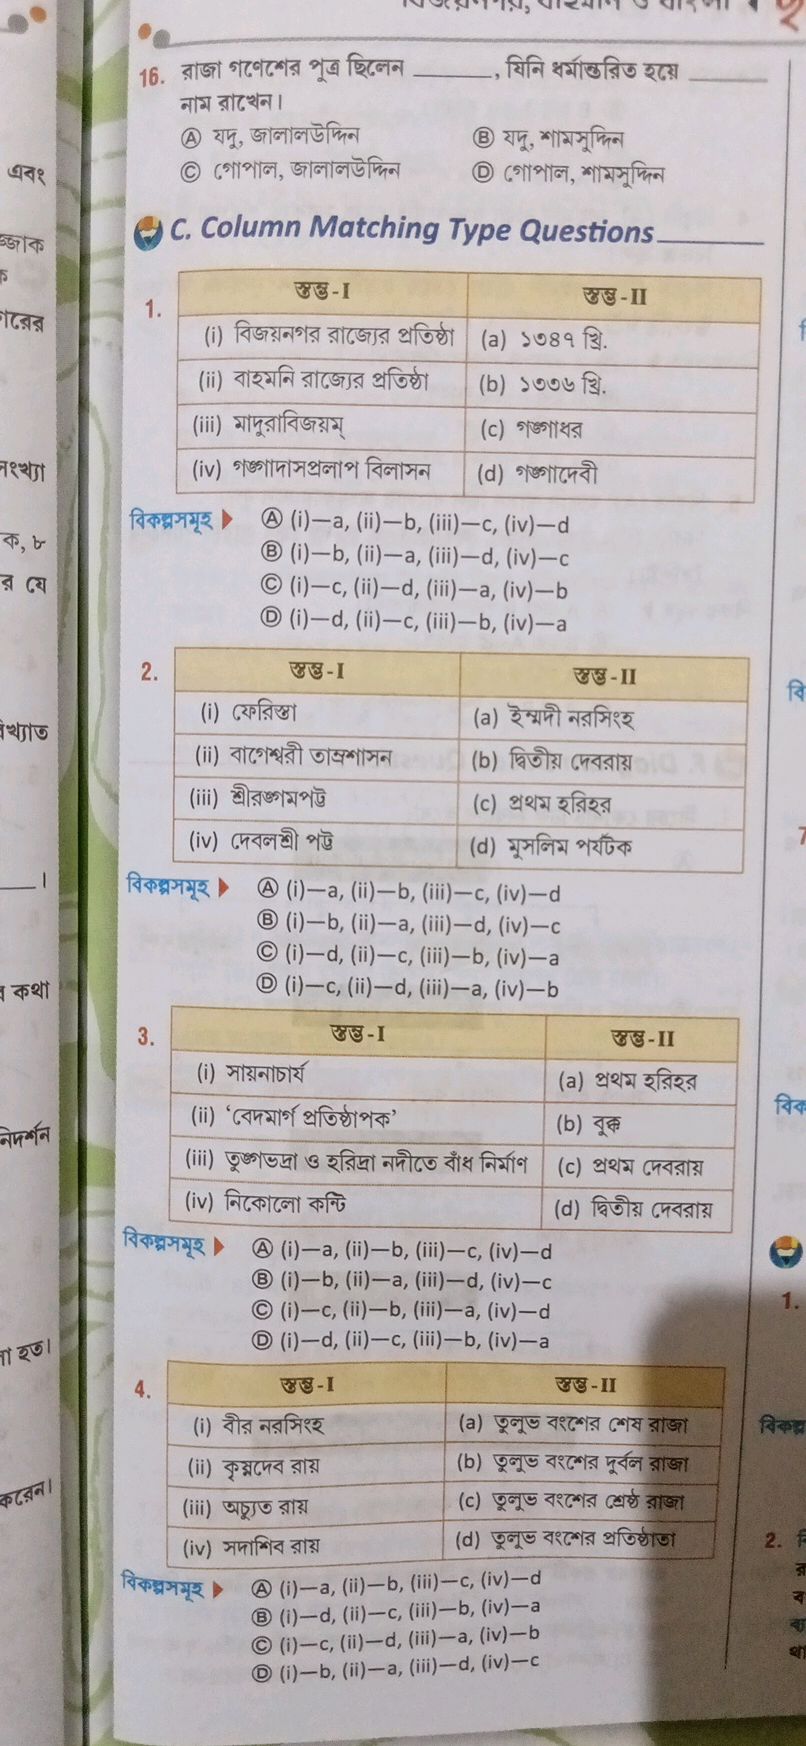 16. রাজা গণেশের পুত্র ছিলেন ________, যিনি ধর্মান্তরিত হয়ে ________
নাম রাখেন।
Ⓐ যদু, জালালউদ্দিন Ⓑ যদু, শামসুদ্দিন
Ⓒ গোপাল, জালালউদ্দিন Ⓓ গোপাল, শামসুদ্দিন
C. Column Matching Type Questions
1. স্তম্ভ-I স্তম্ভ-II
(i) বিজয়নগর রাজ্যের প্রতিষ্ঠা (a) ১৩৪৭ খ্রি.
(ii) বাহমনি রাজ্যের প্রতিষ্ঠা (b) ১৩৩৬ খ্রি.
(iii) মাদুরাবিজয়ম্ (c) গঙ্গাধর
(iv) গঙ্গাদাসপ্রলাপ বিলাসন (d) গঙ্গাদেবী
বিকল্পসমূহ ▶ Ⓐ (i)—a, (ii)—b, (iii)—c, (iv)—d
Ⓑ (i)—b, (ii)—a, (iii)—d, (iv)—c
Ⓒ (i)—c, (ii)—d, (iii)—a, (iv)—b
Ⓓ (i)—d, (ii)—c, (iii)—b, (iv)—a
2. স্তম্ভ-I স্তম্ভ-II
(i) ফেরিস্তা (a) ইম্মদী নরসিংহ
(ii) বাগেশ্বরী তাম্রশাসন (b) দ্বিতীয় দেবরায়
(iii) শ্রীরঙ্গমপট্ট (c) প্রথম হরিহর
(iv) দেবলশ্রী পট্ট (d) মুসলিম পর্যটক
বিকল্পসমূহ ▶ Ⓐ (i)—a, (ii)—b, (iii)—c, (iv)—d
Ⓑ (i)—b, (ii)—a, (iii)—d, (iv)—c
Ⓒ (i)—d, (ii)—c, (iii)—b, (iv)—a
Ⓓ (i)—c, (ii)—d, (iii)—a, (iv)—b
3. স্তম্ভ-I স্তম্ভ-II
(i) সায়নাচার্য (a) প্রথম হরিহর
(ii) ‘বেদমার্গ প্রতিষ্ঠাপক’ (b) বুক্ক
(iii) তুঙ্গভদ্রা ও হরিদ্রা নদীতে বাঁধ নির্মাণ (c) প্রথম দেবরায়
(iv) নিকোলো কন্টি (d) দ্বিতীয় দেবরায়
বিকল্পসমূহ ▶ Ⓐ (i)—a, (ii)—b, (iii)—c, (iv)—d
Ⓑ (i)—b, (ii)—a, (iii)—d, (iv)—c
Ⓒ (i)—c, (ii)—b, (iii)—a, (iv)—d
Ⓓ (i)—d, (ii)—c, (iii)—b, (iv)—a
4. স্তম্ভ-I স্তম্ভ-II
(i) বীর নরসিংহ (a) তুলুভ বংশের শেষ রাজা
(ii) কৃষ্ণদেব রায় (b) তুলুভ বংশের দুর্বল রাজা
(iii) অচ্যুত রায় (c) তুলুভ বংশের শ্রেষ্ঠ রাজা
(iv) সদাশিব রায় (d) তুলুভ বংশের প্রতিষ্ঠাতা
বিকল্পসমূহ ▶ Ⓐ (i)—a, (ii)—b, (iii)—c, (iv)—d
Ⓑ (i)—d, (ii)—c, (iii)—b, (iv)—a
Ⓒ (i)—c, (ii)—d, (iii)—a, (iv)—b
Ⓓ (i)—b, (ii)—a, (iii)—d, (iv)—c